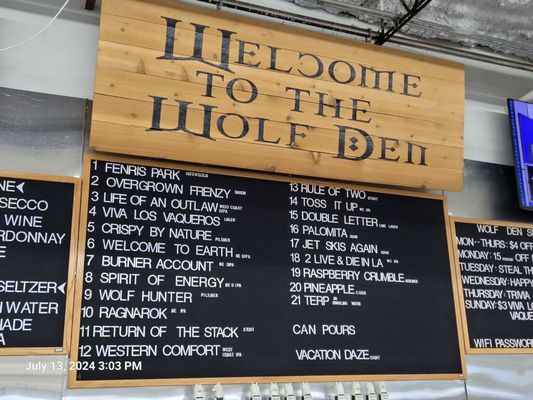 WELCOME
TO THE
WOLF DEN
NE
SECCO
WINE
RDONNAY
NE
SELTZER
H WATER
NADE
A
1 FENRIS PARK HEFEWEIZEN
2 OVERGROWN FRENZY
3 LIFE OF AN OUTLAW WEST COAST DIPA
4 VIVA LOS VAQUEROS LAGER
5 CRISPY BY NATURE PILSNER
6 WELCOME TO EARTH NE DIPA
7 BURNER ACCOUNT NE DIPA
8 SPIRIT OF ENERGY NE D IPA
9 WOLF HUNTER PILSNER
10 RAGNAROK NE IPA
11 RETURN OF THE STACK STOUT
12 WESTERN COMFORT WEST COAST IPA
13 RULE OF TWO STOUT
14 TOSS IT UP NE IPA
15 DOUBLE LETTER LAGER
16 PALOMITA GOSE
17 JET SKIS AGAIN SOUR
18 2 LIVE & DIE IN LA NE IPA
19 RASPBERRY CRUMBLE
20 PINEAPPLE CIDER
21 TERP SPARKLING WATER
CAN POURS
VACATION DAZE STOUT
WOLF DEN S
MON - THURS: $4 OFF
MONDAY: 15
TUESDAY: STEAL TH
WEDNESDAY: HAPPY
THURSDAY: TRIVIA
SUNDAY: $3 VIVA LO
VAQUE
WIFI PASSWORD
July 13, 2024 3:03 PM